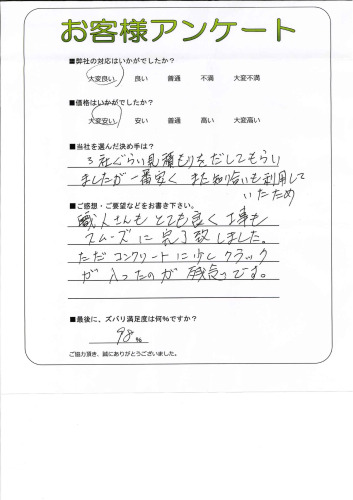 お客様アンケート
■弊社の対応はいかがでしたか?
大変良い 良い 普通 不満 大変不満
■価格はいかがでしたか?
大変安い 安い 普通 高い 大変高い
■当社を選んだ決め手は?
3社ぐらい見積もりをだしてもらい
ましたが一番安く また知り合いも利用して
いたため
■ご感想・ご要望などをお書き下さい。
職人さんも とても良く 工事も
スムーズに 完了致しました。
ただコンクリートに少しクラック
が 入ったのが 残念です。
■最後に、ズバリ満足度は何%ですか?
98%
ご協力頂き、誠にありがとうございました。